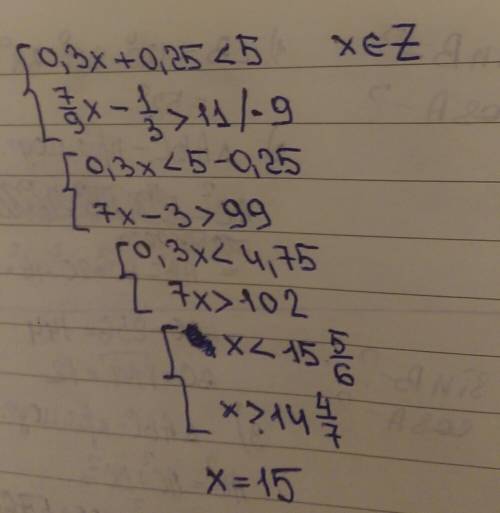 0,3x + 0,25 < 5 x ∈ Z
7/9 x - 1/3 > 11 | · 9
0,3x < 5 - 0,25
7x - 3 > 99
0,3x < 4,75
7x > 102
x < 15 5/6
x > 14 4/7
x = 15